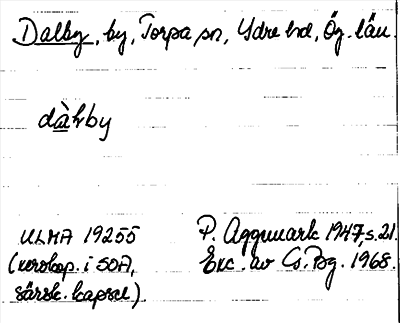 Dalby, by, Torpa sn, Ydre hd, Ög. län.
dàhby
ULMA 19255
(uroskap. i SOA,
särsk. kapsel).
P. Aggmark 1947, s. 21.
Exc. av Cs. Bg. 1968.